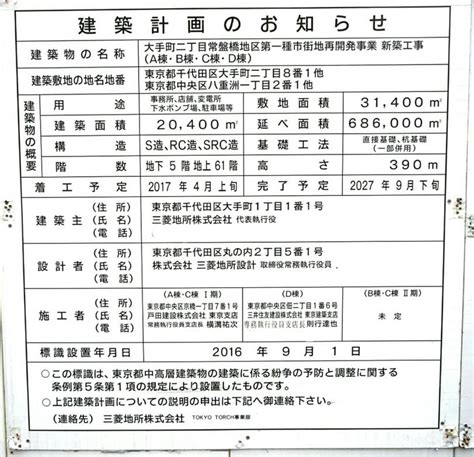 建築計画のお知らせ
建築物の名称 大手町二丁目常盤橋地区第一種市街地再開発事業 新築工事
(A棟・B棟・C棟・D棟)
建築敷地の地名地番 東京都千代田区大手町二丁目8番1他
東京都中央区八重洲一丁目2番1他
建築物の概要
用途 事務所、店舗、変電所
下水ポンプ場、駐車場等
敷地面積 31,400㎡
建築面積 20,400㎡ 延べ面積 686,000㎡
構造 S造、RC造、SRC造 基礎工法 直接基礎、杭基礎
(一部併用)
階数 地下5階 地上61階 高さ 390m
着工予定 2017年4月上旬 完了予定 2027年9月下旬
建築主 (住所) 東京都千代田区大手町1丁目1番1号
(氏名) 三菱地所株式会社 代表執行役
(電話)
設計者 (住所) 東京都千代田区丸の内2丁目5番1号
(氏名) 株式会社 三菱地所設計 取締役常務執行役員
(電話)
施工者 (住所) (氏名) (電話)
(A棟・C棟Ⅰ期)
東京都中央区京橋一丁目7番1号
戸田建設株式会社 東京支店
常務執行役員支店長 横溝祐次
(D棟)
東京都中央区佃二丁目1番6号
三井住友建設株式会社 東京建築支店
専務執行役員支店長 則行達也
(B棟・C棟Ⅱ期)
未定
標識設置年月日 2016年9月1日
○この標識は、東京都中高層建築物の建築に係る紛争の予防と調整に関する
条例第5条第1項の規定により設置したものです。
○上記建築計画についての説明の申出は下記へ御連絡下さい。
(連絡先) 三菱地所株式会社 TOKYO TORCH事業部